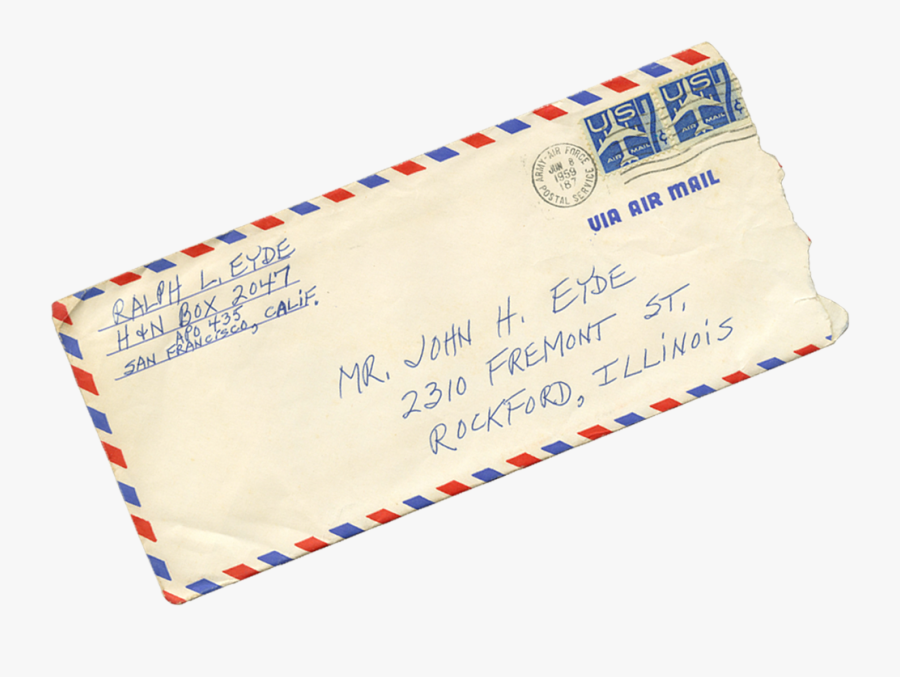 RALPH L. EYDE
H&N BOX 2047
APO 435
SAN FRANCISCO, CALIF.
ARMY-AIR FORCE
JUN 8
1959
187
POSTAL SERVICE
US 7¢
AIR MAIL
US 7¢
AIR MAIL
VIA AIR MAIL
MR. JOHN H. EYDE
2310 FREMONT ST.
ROCKFORD, ILLINOIS